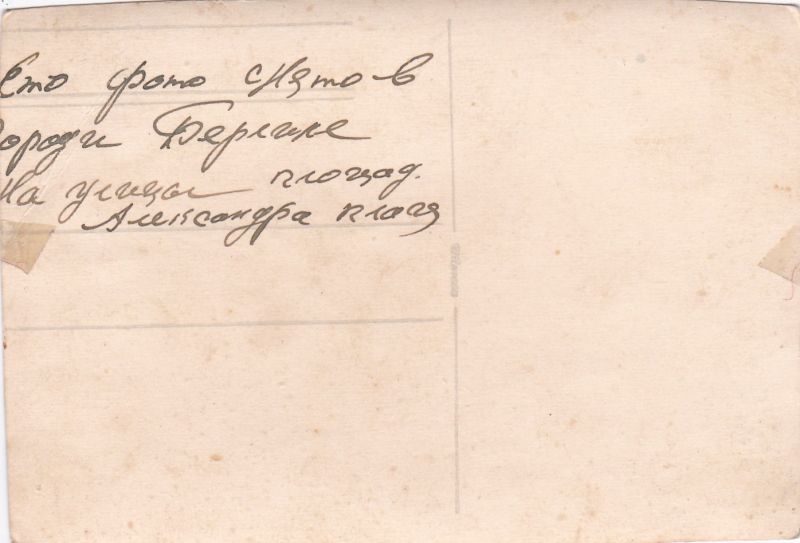 Ето фото снято в
городи Берлине
На улицы площад.
Александра плац